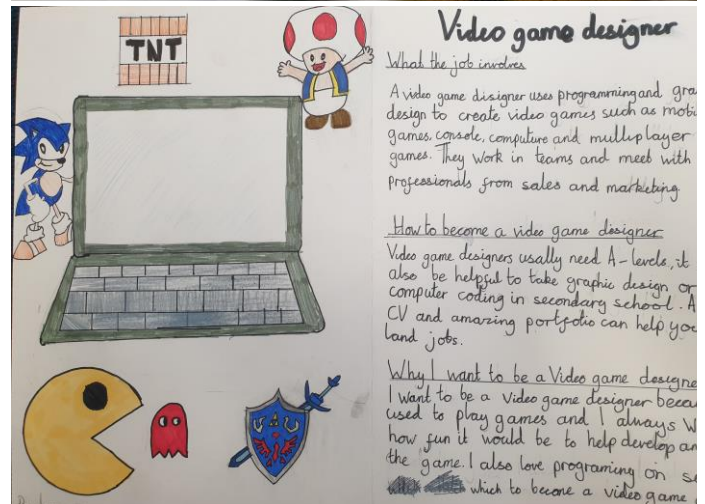 TNT
Video game designer
What the job involves
A video game disigner uses programming and gra
design to create video games such as mobi
games, console, computure and multiplayer
games. They work in teams and meet with
professionals from sales and marketing
How to become a video game disigner
Video game designers usally need A-levels, it
also be helpful to take graphic design or
computer coding in secondary school. A
CV and amazing portfolio can help you
land jobs.
Why I want to be a Video game designe
I want to be a video game designer becau
used to play games and I always w
how fun it would be to help develop an
the game. I also love programing on s
which to become a video game